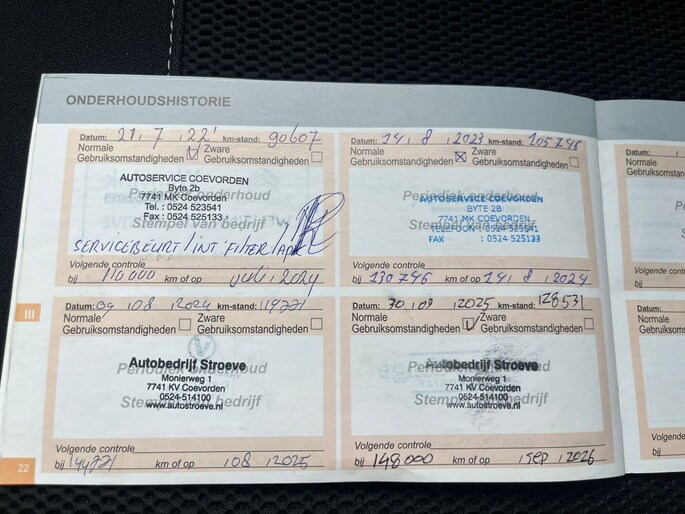 ONDERHOUDSHISTORIE
Datum: 21 . 7 . 22' km-stand: 90607
Normale Zware
Gebruiksomstandigheden Gebruiksomstandigheden
AUTOSERVICE COEVORDEN
Byte 2b
Periodiek onderhoud
7741 MK Coevorden
Tel. : 0524 523541
Fax : 0524 525133
Stempel van bedrijf
SERVICEBEURT / INT FILTER / APK
Volgende controle
bij 110.000 km of op juli . 2024
Datum: 14 . 8 . 2023 km-stand: 105746
Normale Zware
Gebruiksomstandigheden Gebruiksomstandigheden
AUTOSERVICE COEVORDEN
Periodiek onderhoud
BYTE 2B
7741 MK COEVORDEN
Stempel van bedrijf
TELEFOON : 0524 523541
FAX : 0524 525133
Volgende controle
bij 130746 km of op 14 . 8 . 2024
Datum: 09 . 08 . 2024 km-stand: 114771
Normale Zware
Gebruiksomstandigheden Gebruiksomstandigheden
Autobedrijf Stroeve
Periodiek onderhoud
Monierweg 1
7741 KV Coevorden
0524-514100
Stempel van bedrijf
www.autostroeve.nl
Volgende controle
bij 144771 km of op 08 . 2025
Datum: 30 . 09 . 2025 km-stand: 128531
Normale Zware
Gebruiksomstandigheden Gebruiksomstandigheden
Autobedrijf Stroeve
Periodiek onderhoud
Monierweg 1
7741 KV Coevorden
0524-514100
Stempel van bedrijf
www.autostroeve.nl
Volgende controle
bij 148000 km of op sep . 2026
III
22
Datum:
Normale
Gebruiksom
Volgende c
bij
Datum:
Normale
Gebruikso
Volgende
bij